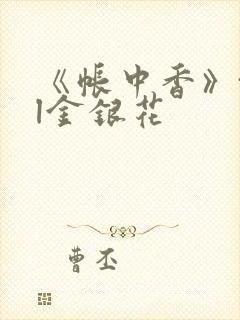 《帐中香》
|金银花
曹丕